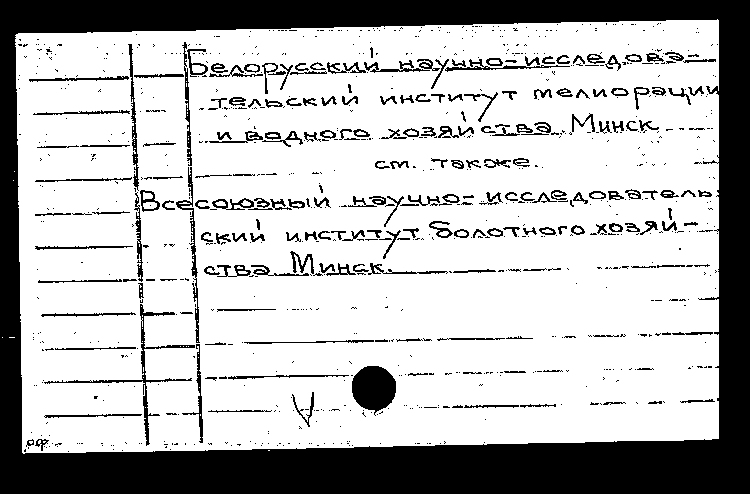 Белорусский научно-исследова-
тельский институт мелиорации
и водного хозяйства. Минск
см. также.
Всесоюзный научно-исследователь-
ский институт болотного хозяй-
ства. Минск.